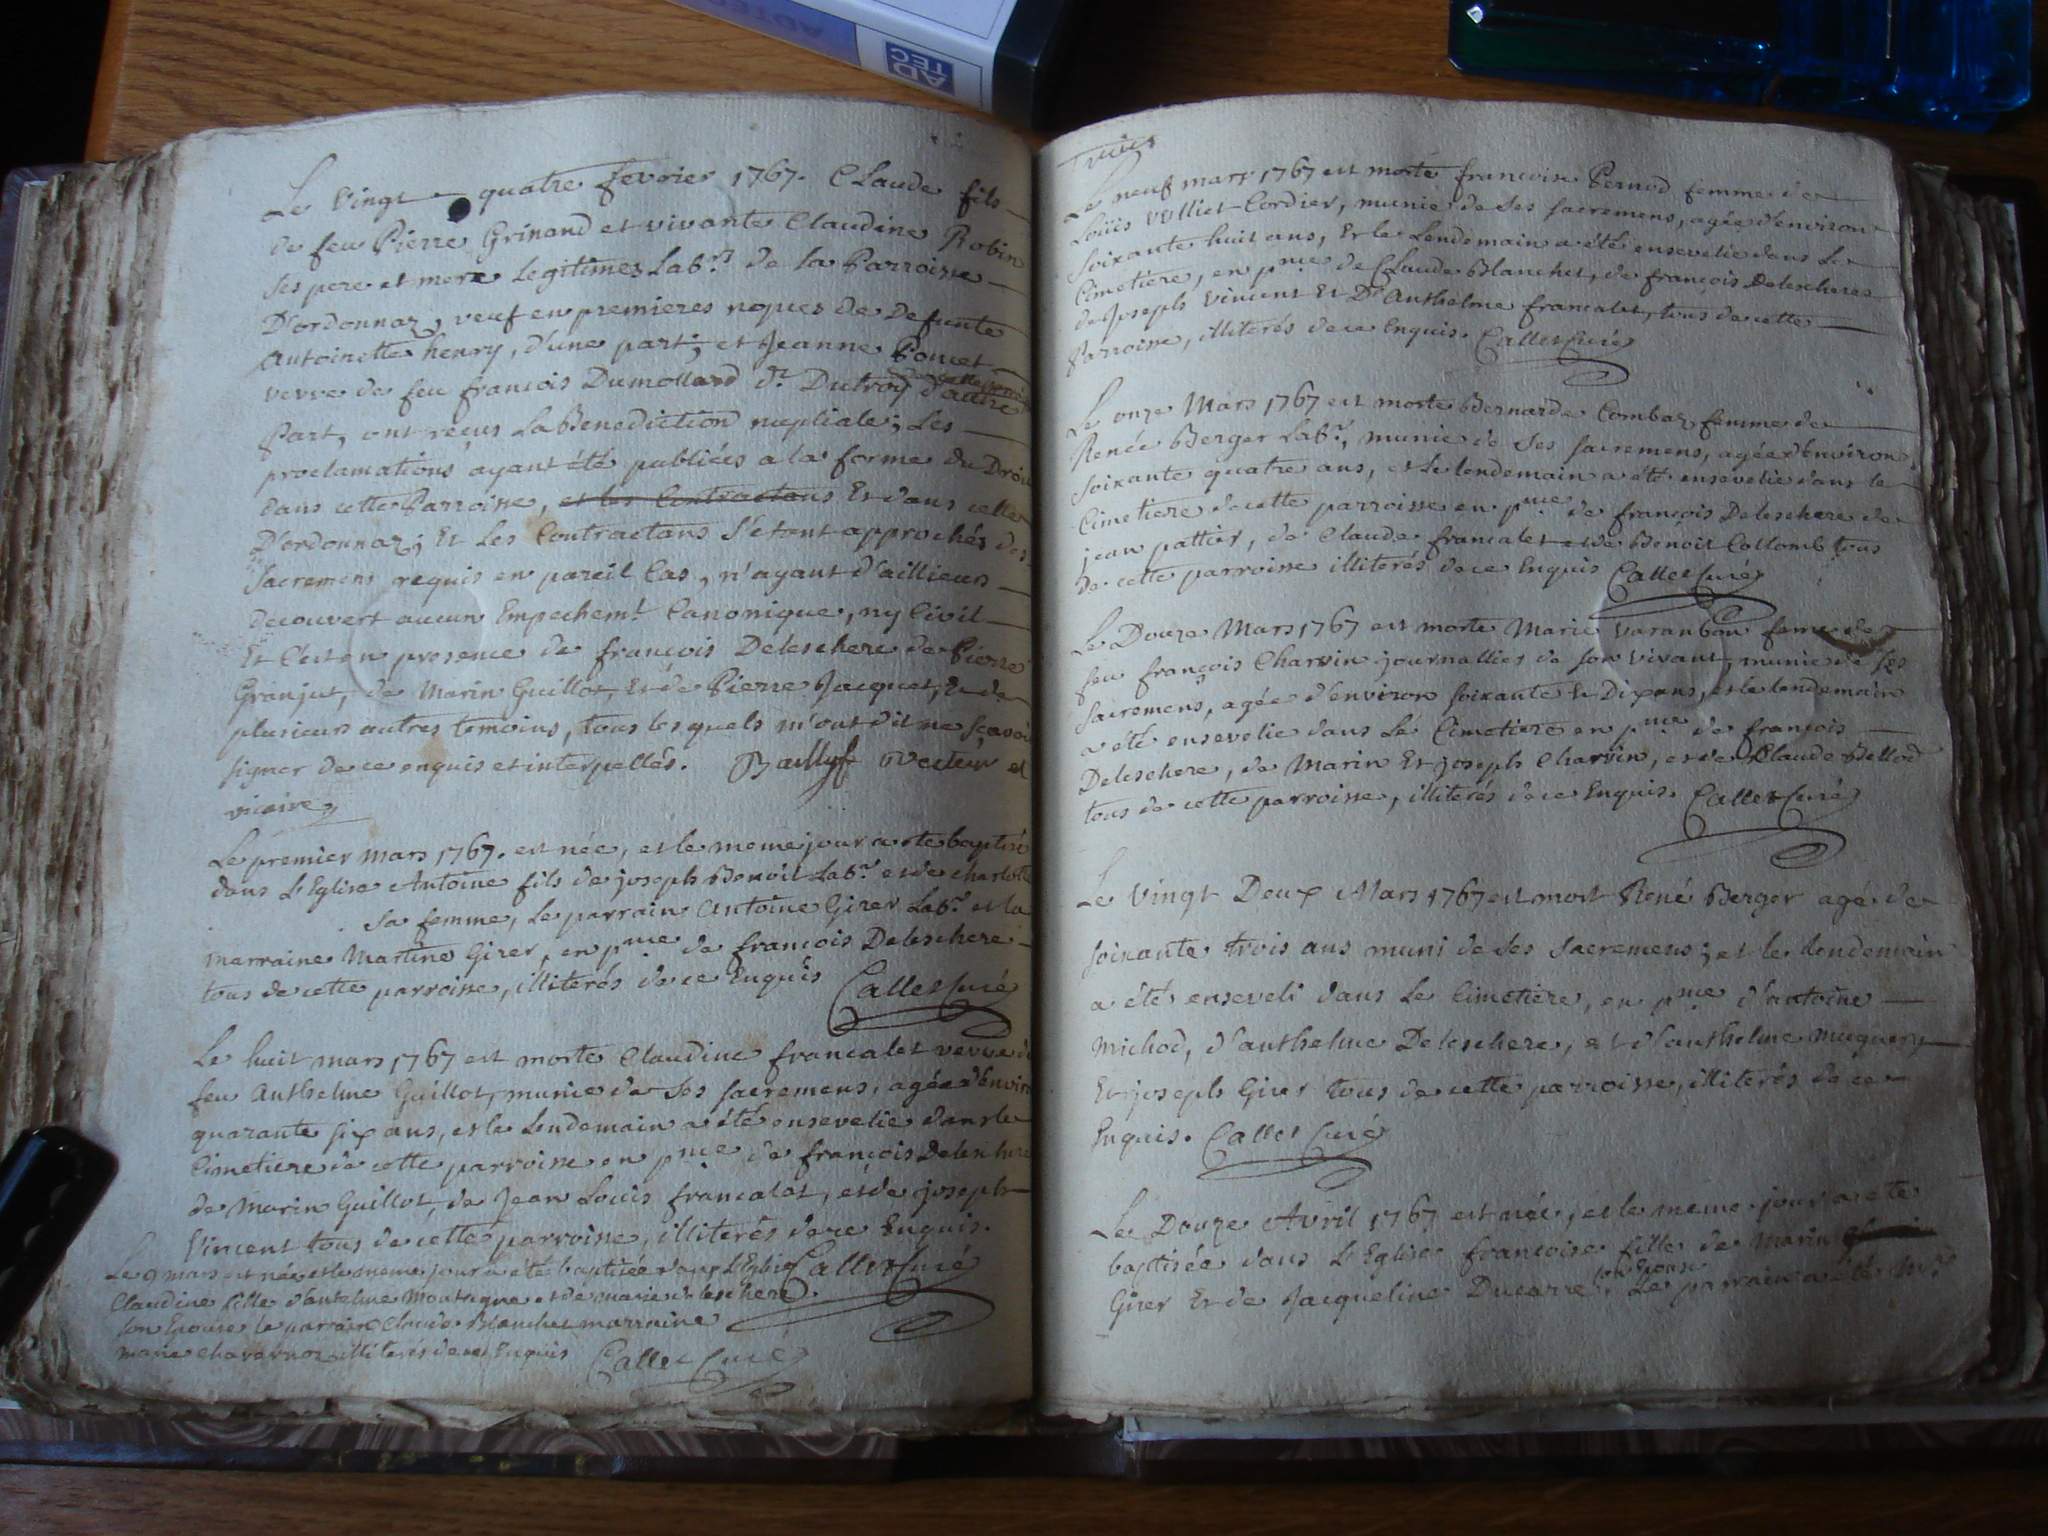 ADTEC
AD
TEC
Le Vingt quatre fevrier 1767. Claude fils
de feu Pierre Grinand et vivante Claudine Robin
ses pere et mere legitimes Lab.rs de la Parroisse
D'ordonnaz, veuf en premieres nopces de defunte
Antoinette henry, d'une part; et Jeanne Poncet
vevve de feu francois Dumollard d.t Dutroy d'autre
Part, ont reçus La Benediction nuptiale; Les
proclamations ayant été publiées a la forme du Droit
dans cette Parroisse, et les Contractans Et dans celle
D'ordonnaz; Et Les Contractans s'etant approchés des
Sacremens requis en pareil Cas, n'ayant d'ailleurs
decouvert aucun Empechem.t Canonique, ny Civil
Et C'est en presence de françois Deleschere de Pierre
Granjut, de Marin Guillot, Et de Pierre Jacquet, Et de
plusieurs autres temoins, tous lesquels m'ont dit ne sçavoir
signer de ce enquis et interpellés. Baillyf et
vicaire
Le premier mars 1767. est née, et le meme jour a ete baptisé
dans L'Eglise Antoine fils de joseph Benoit Lab.r et de charlotte
sa femme, Le parrain Antoine Girer Lab.r et la
marraine Martine Girer, en p.nce de francois Deleschere
tous de cette parroisse, illiterés de ce Enquis Callet Curé
Le huit mars 1767 est morte Claudine francalet vevve de
feu Anthelme Guillot, munie de ses sacremens, agée d'environ
quarante six ans, et le Lendemain a été ensevelie dans le
Cimetiere de cette parroisse en p.nce de françois Deleschere
de Marin Guillot, de Jean Louis francalet, et de joseph
Vincent tous de cette parroisse, illiterés de ce Enquis.
Callet Curé
Le 9 mars est née et le meme jour a été baptisée dans L'Eglise
Claudine fille d'antelme Montagne et de marie deleschere
son Epouse le parrain Claude Blanchet marraine
marie chavernoz illiterés de ce Enquis Callet Curé
Le neuf mars 1767 est morte francoise Pernod femme de
Loüis Vulliet Cordier, munie de ses sacremens, agée d'environ
Soixante huit ans, Et le Lendemain a été ensevelie dans Le
Cimetiere, en p.nce de Claude Blanchet, de françois Deleschere
de Joseph Vincent Et D'Anthelme francalet, tous de cette
Parroisse, illiterés de ce Enquis. Callet Curé
Le onze Mars 1767 est morte Bernarde Combaz femme de
Renée Berger Lab.r, munie de Ses sacremens, agée d'environ
Soixante quatre ans, et le lendemain a été ensevelie dans le
Cimetiere de cette parroisse en p.nce de françois Deleschere de
jean pattier, de Claude francalet et de Benoit Collomb tous
de cette parroisse illiterés de ce Enquis Callet Curé
Le Douze Mars 1767 est morte Marie Varanbon feme de
feu françois Charvin journallier de son vivant, munie de ses
Sacremens, agée d'environ soixante Et Dix ans, et le lendemain
a été ensevelie dans Le Cimetiere en p.nce de françois
Deleschere, de Marin Et joseph Charvin, et de Claude Bellod
tous de cette parroisse, illiterés de ce Enquis. Callet Curé
Le Vingt Deux Mars 1767 est mort René Berger agé de
soixante trois ans muni de Ses Sacremens; et le lendemain
a été enseveli dans Le Cimetiere, en p.nce d'antoine
Michod, d'anthelme Deleschere, et d'anthelme
Et joseph Girer tous de cette parroisse, illiterés de ce
Enquis. Callet Curé
Le Douze Avril 1767 est née, et le meme jour a été
baptisée dans L'Eglise francoise fille de Marin
Girer Et de Jacqueline Ducarre son Epouse. Le parrain a été M.r